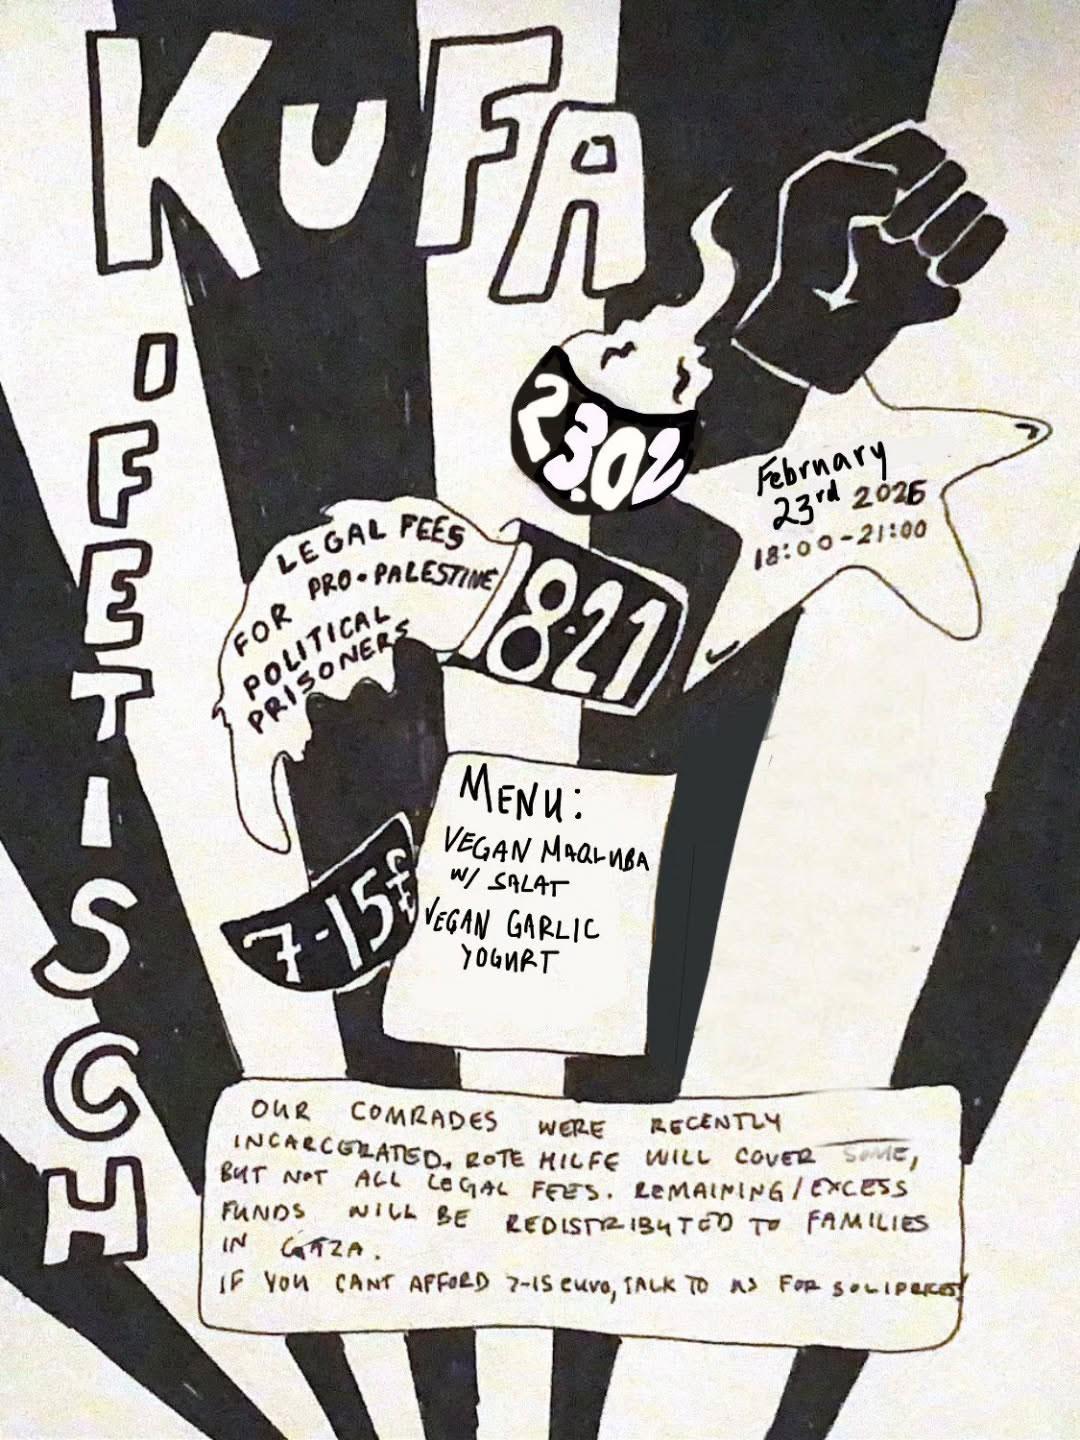 KUFA
OFETISCH
23.02
February
23rd 2026
18:00-21:00
LEGAL FEES
FOR PRO-PALESTINE
POLITICAL
PRISONERS
18-21
MENU:
VEGAN MAQLUBA
W/ SALAT
VEGAN GARLIC
YOGURT
7-15£
OUR COMRADES WERE RECENTLY
INCARCERATED. ROTE HILFE WILL COVER SOME,
BUT NOT ALL LEGAL FEES. REMAINING/EXCESS
FUNDS WILL BE REDISTRIBUTED TO FAMILIES
IN GAZA.
IF YOU CANT AFFORD 7-15 euro, TALK TO US FOR SOLIPRICES!